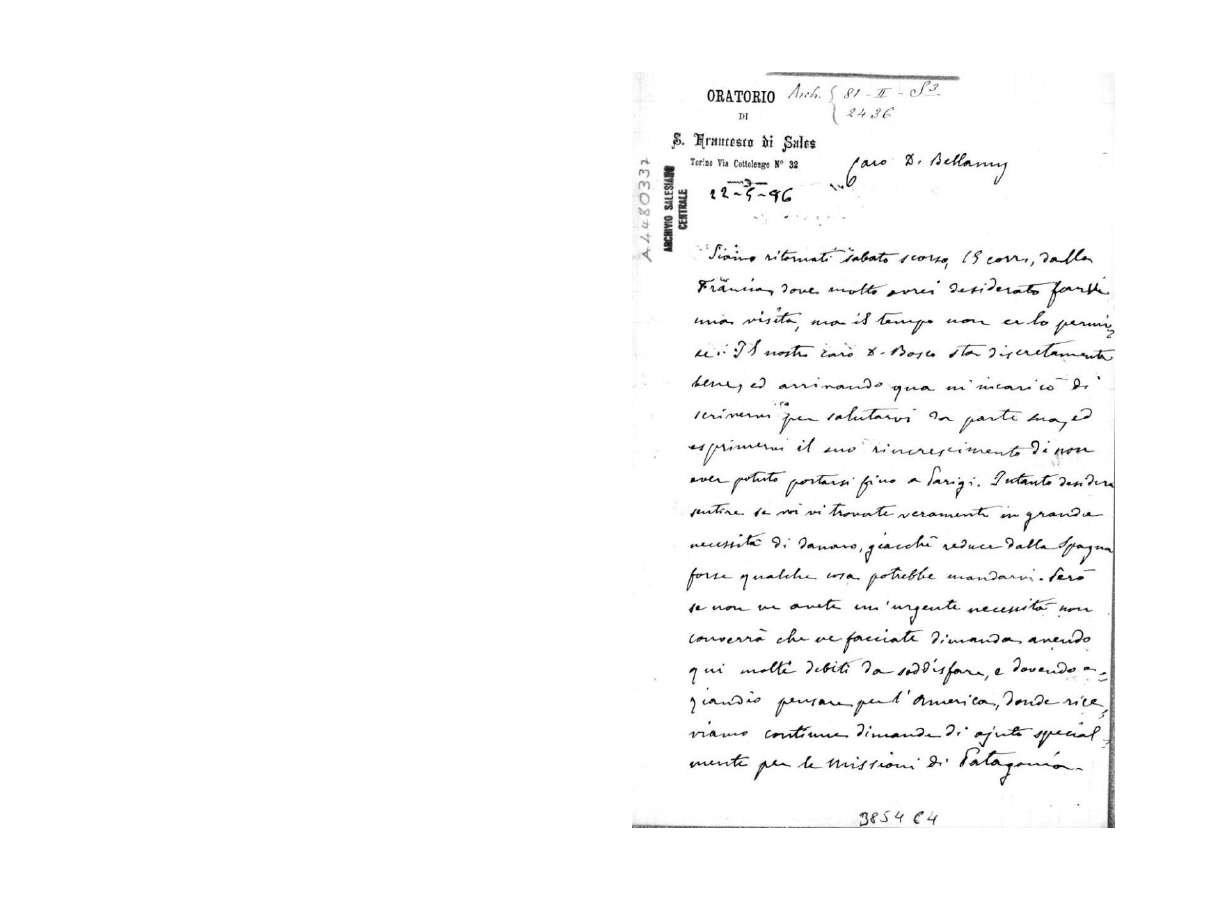 ORATORIO
DI
S. Francesco di Sales
Torino Via Cottolengo N° 32
Arch. { 81-II-S3.
2436
22-5-86
A4480337
ARCHIVIO SALESIANO
CENTRALE
Caro D. Bellamy
Siamo ritornati sabato scorso, 15 corr., dalla
Francia, dove molto avrei desiderato farvi
una visita, ma il tempo non ce lo permi=
se. Il nostro caro D. Bosco sta discretamente
bene, ed arrivando qua m'incaricò di
scrivervi per salutarvi da parte sua, ed
esprimervi il suo rincrescimento di non
aver potuto portarsi fino a Parigi. Intanto desidera
sentire se voi vi trovate veramente in grande
necessità di danaro, giacchè reduce dalla Spagna
forse qualche cosa potrebbe mandarvi. Però
se non ne avete un'urgente necessità non
converrà che ne facciate dimanda avendo
qui molti debiti da soddisfare, e dovendo e=
ziandio pensare per l'America, donde rice=
viamo continue dimande di ajuto special=
mente per le missioni di Patagonia.
3854 C4